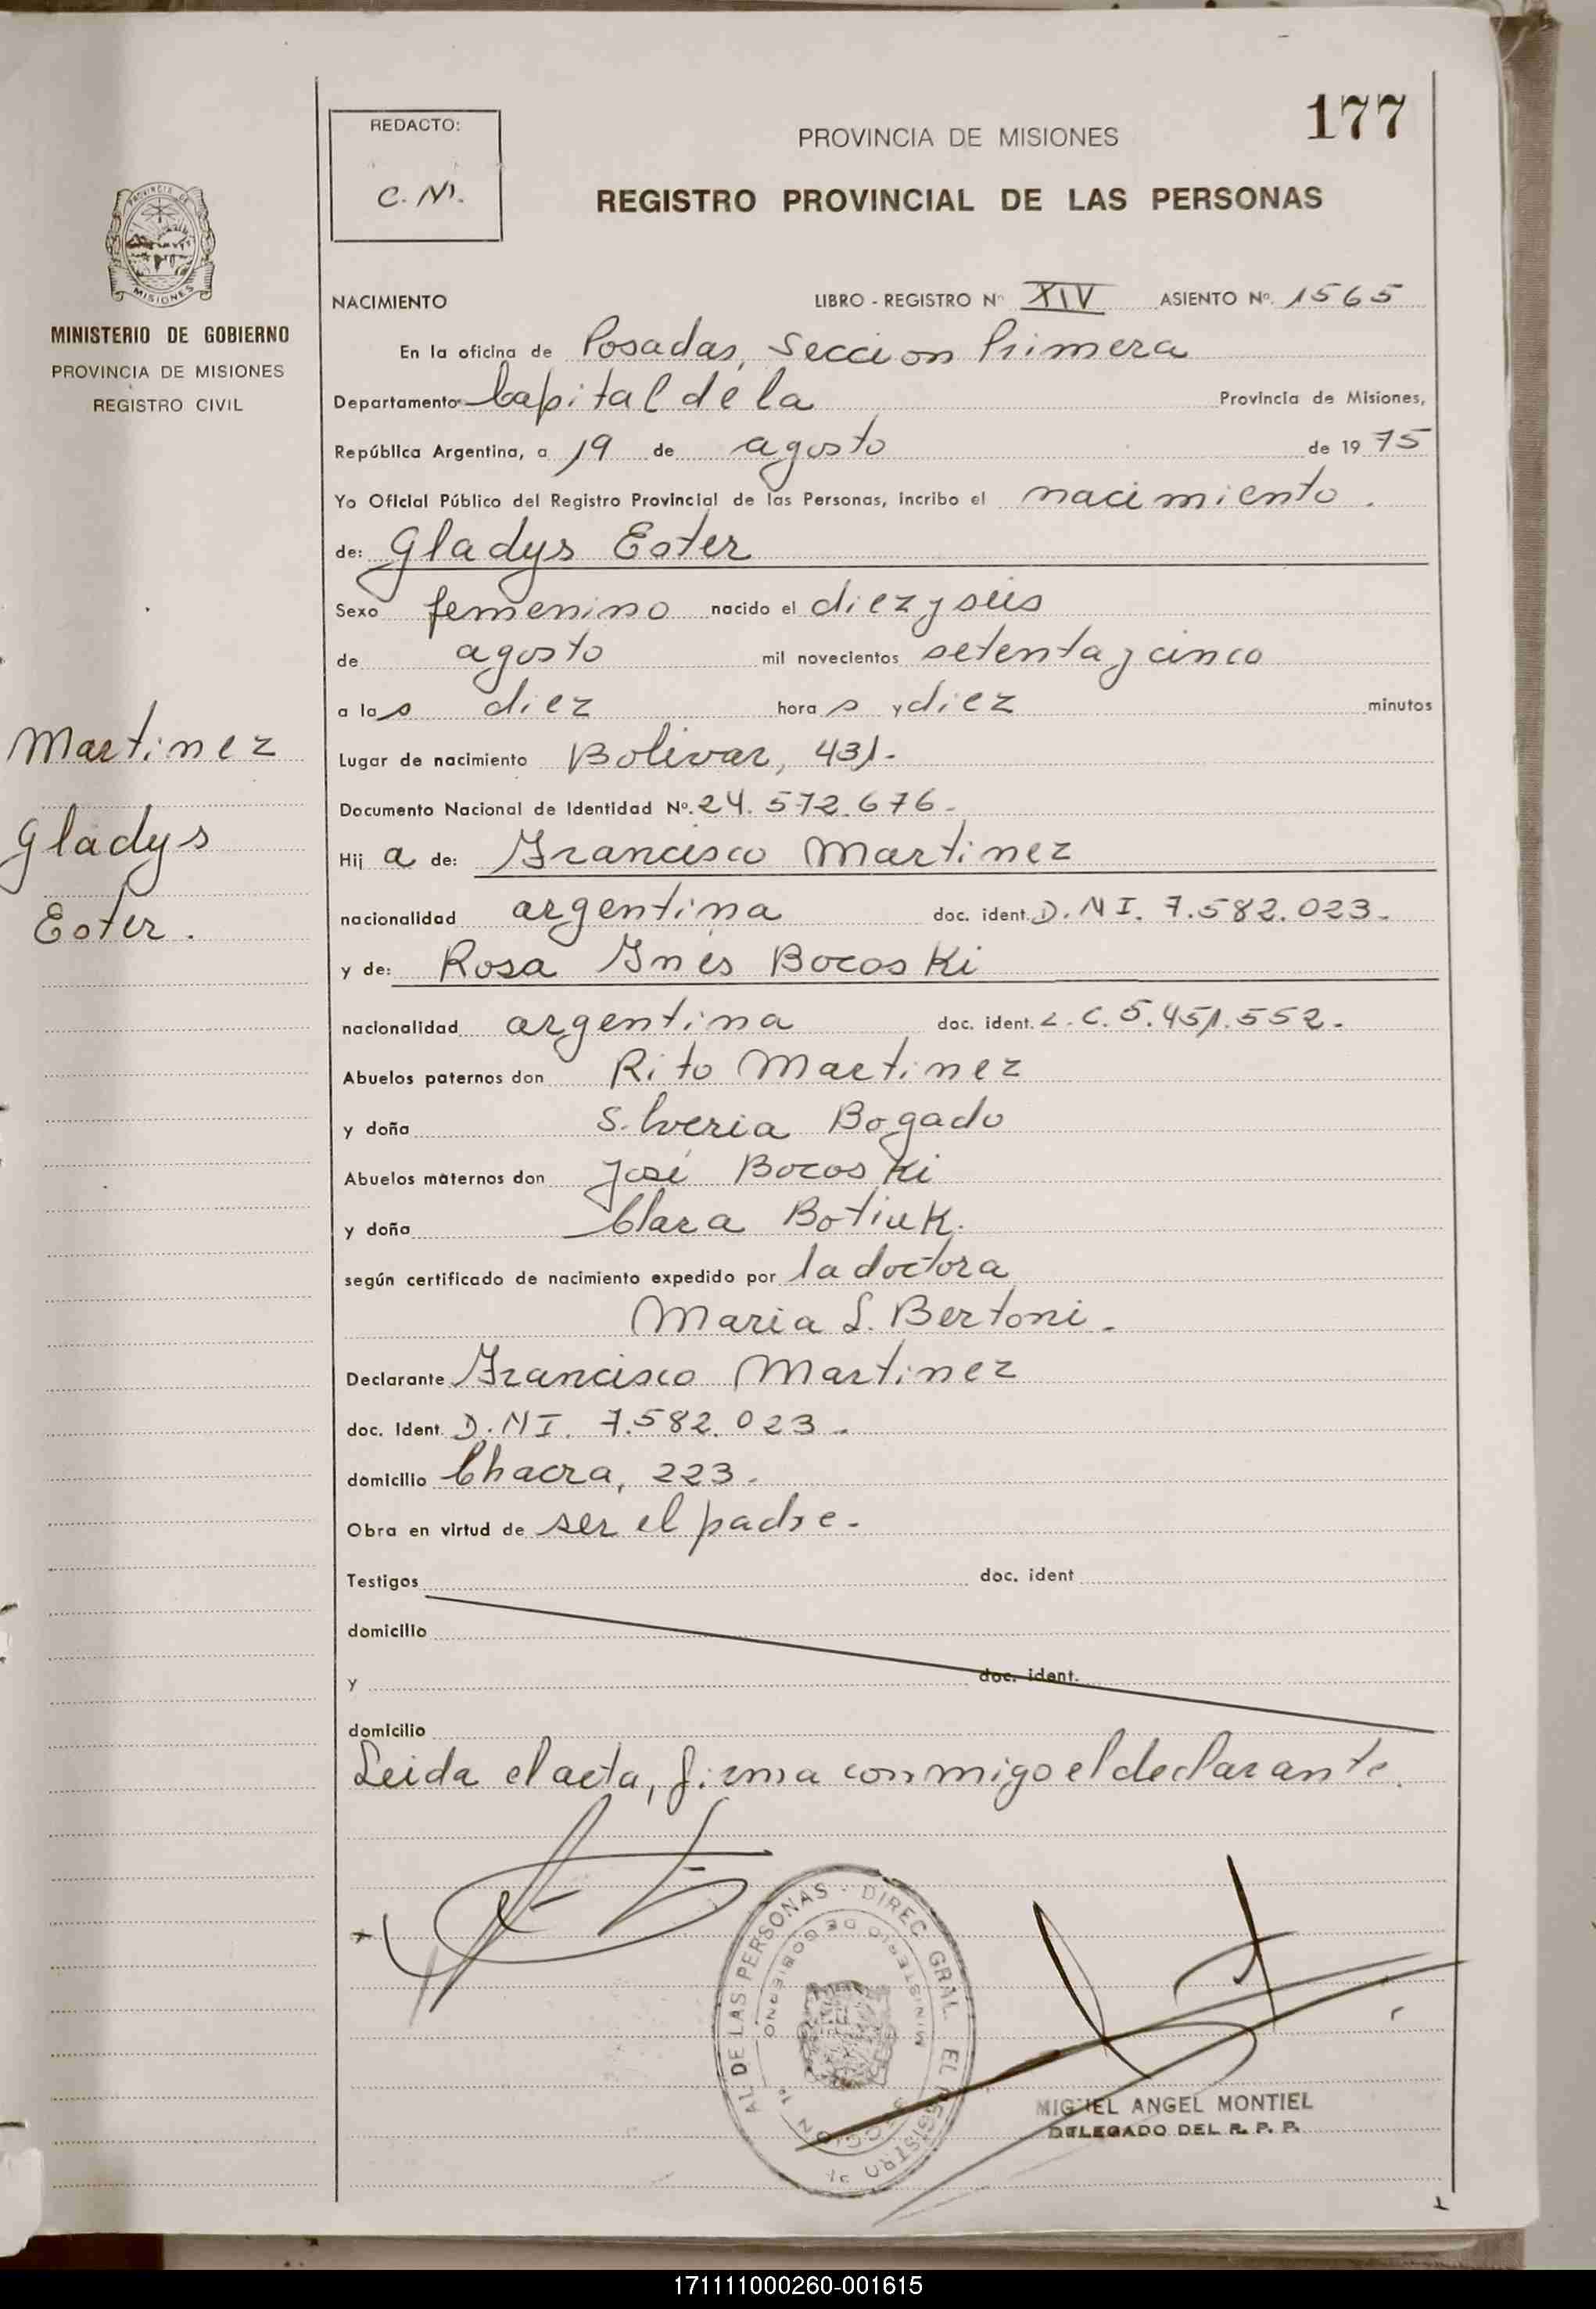 177
REDACTO:
C. M.
PROVINCIA DE MISIONES
REGISTRO PROVINCIAL DE LAS PERSONAS
PROVINCIA DE
MISIONES
MINISTERIO DE GOBIERNO
PROVINCIA DE MISIONES
REGISTRO CIVIL
NACIMIENTO LIBRO - REGISTRO Nº XIV ASIENTO Nº. 1565
En la oficina de Posadas, Seccion Primera
Departamento Capital de la Provincia de Misiones,
República Argentina, a 19 de agosto de 19 75
Yo Oficial Público del Registro Provincial de las Personas, incribo el nacimiento.
de: Gladys Ester
Sexo femenino nacido el diez y seis
de agosto mil novecientos setenta y cinco
a las diez horas y diez minutos
Martinez
Gladys
Ester.
Lugar de nacimiento Bolivar, 431.-
Documento Nacional de Identidad Nº. 24.572.676-
Hij a de: Francisco Martinez
nacionalidad argentina doc. ident. D.N I. 7.582.023.-
y de: Rosa Inés Bocoski
nacionalidad argentina doc. ident. L.C. 5.451.552.-
Abuelos paternos don Rito Martinez
y doña Silveria Bogado
Abuelos maternos don José Bocoski
y doña Clara Botiuk.
según certificado de nacimiento expedido por la doctora
Maria L. Bertoni.-
Declarante Francisco Martinez
doc. Ident. D.NI. 7.582.023.-
domicilio Chacra, 223.-
Obra en virtud de ser el padre.-
Testigos doc. ident
domicilio
y doc. ident.
domicilio
Leida el acta, firma conmigo el declarante.
AL DE LAS PERSONAS - DIREC. GRAL. EL REGISTRO
MINISTERIO DE GOBIERNO
SECCION 1ª
MIGUEL ANGEL MONTIEL
DELEGADO DEL R. P. P.
171111000260-001615